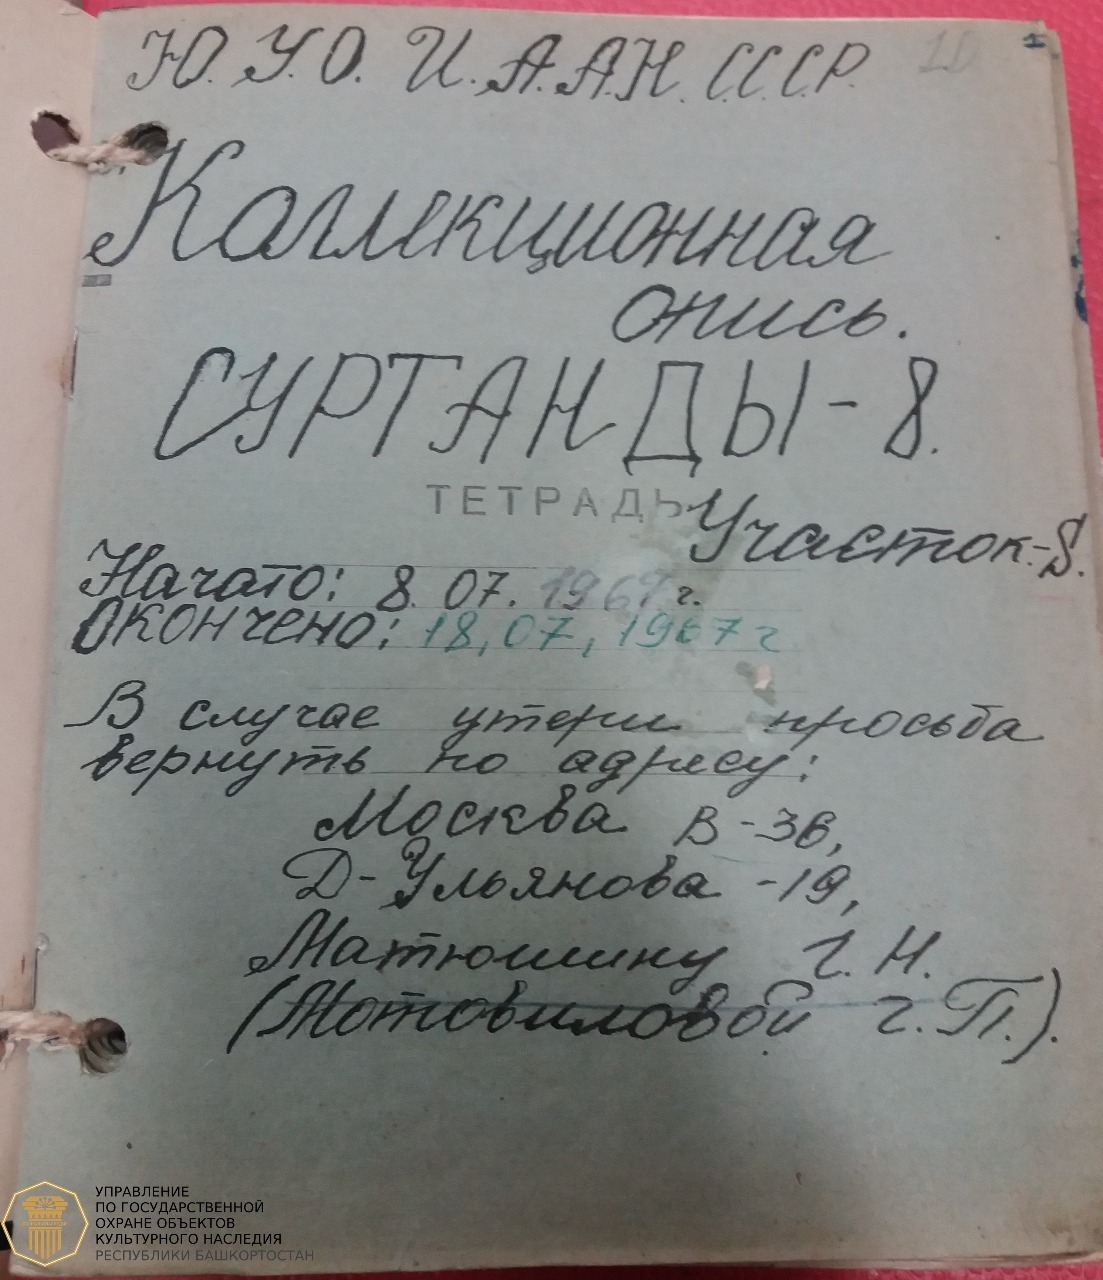 Ю. У. О. И. А. А. Н. С. С. С. Р. 10
Коллекционная
опись.
СУРТАНДЫ - 8.
ТЕТРАДЬ
Участок - 8.
Начато: 8. 07. 1967 г.
Окончено: 18, 07, 1967 г
В случае утери просьба
вернуть по адресу:
Москва В - 36,
Д - Ульянова - 19,
Матюшину Г. Н.
(Мотовиловой Г. П.).
УПРАВЛЕНИЕ
ПО ГОСУДАРСТВЕННОЙ
ОХРАНЕ ОБЪЕКТОВ
КУЛЬТУРНОГО НАСЛЕДИЯ
РЕСПУБЛИКИ БАШКОРТОСТАН